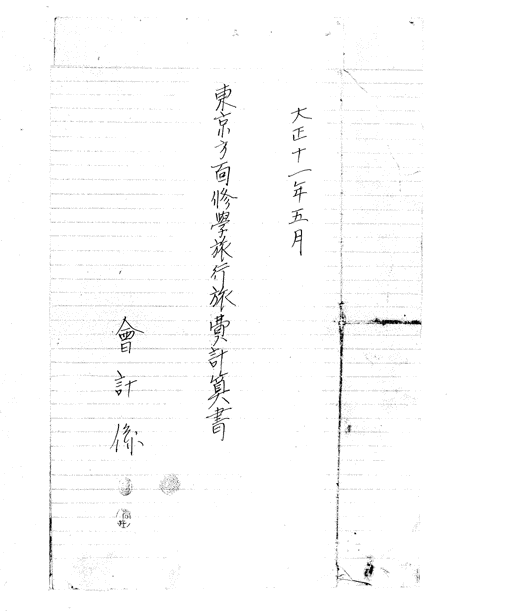 大正十一年五月
東京方面修學旅行旅費計算書
會計係